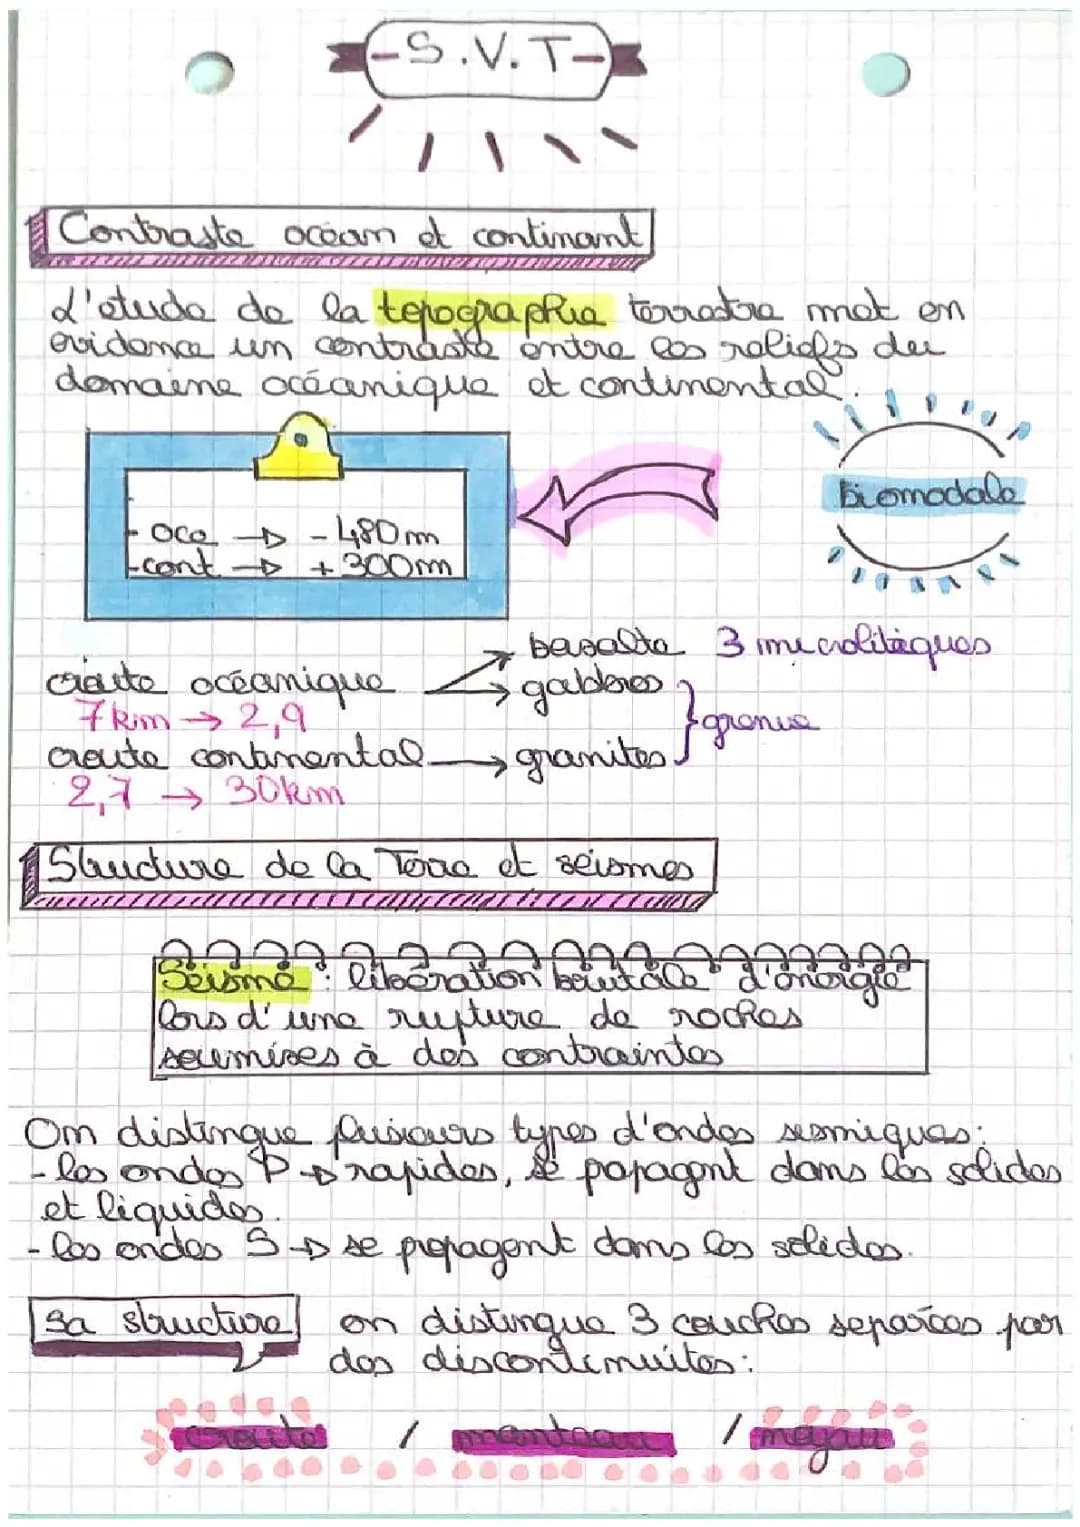 - S.V.T -
Contraste océan et continant
L'étude de la topographie terrestre met en
évidence un contraste entre les reliefs du
domaine océanique et continental.
biomodale
- oce → - 480m
- cont → + 300m
basalte 3 microlitèques
croute océanique
gabbros
7 km → 2,9
grenue
croute continental → granites
2,7 → 30km
Structure de la Terre et séismes
Séisme : libération brutale d'énergie
lors d'une rupture de roches
soumises à des contraintes
On distingue plusieurs types d'ondes sismiques:
- les ondes P → rapides, se propagent dans les solides
et liquides.
- les ondes S → se propagent dans les solides.
Sa structure
on distingue 3 couches séparées par
des discontinuités:
croute / manteau / noyau